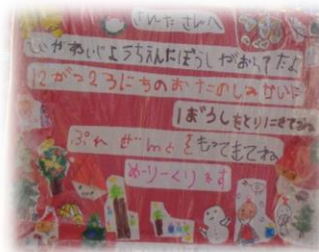 さんたさんへ
ようちえんにぼうしがおちてたよ
12がつ23にちのおたのしみかいに
ぼうしをとりにきてね
ぷれぜんとをもってきてね
めりーくりすます